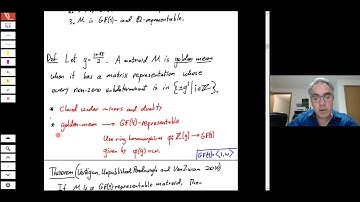 3. M is GF(4)- and Q-representable.
Def. Let g = (1+√5)/2. A matroid M is golden mean
when it has a matrix representation whose
every non-zero subdeterminant is in {±gⁱ | i∈ℤ}.
* Closed under minors and duality
* golden-mean → GF(4)-representable
Use ring homomorphism φ: ℤ[g] → GF(4)
given by φ(g)=ω.
GF(4)
Theorem (Vertigan, Unpublished; and Van Zwam 2010)
If M is a GF(4)-representable matroid, then